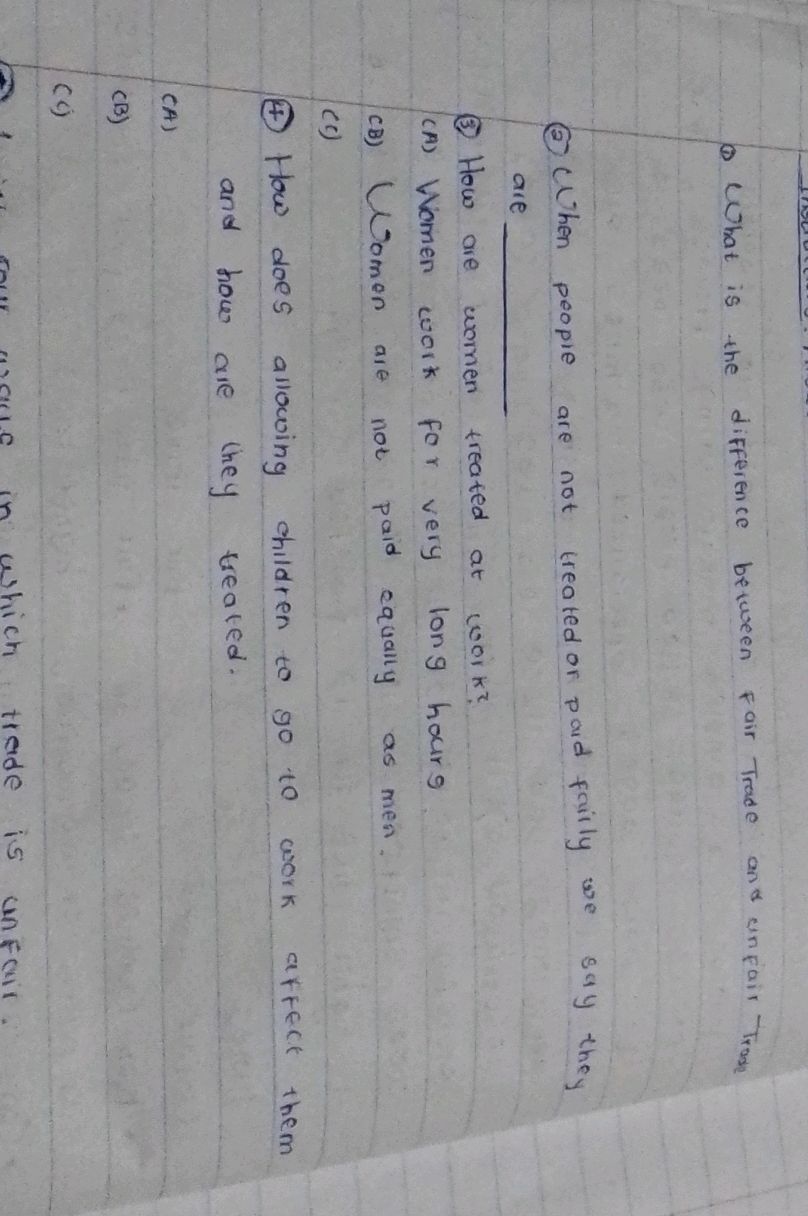 ① What is the difference between Fair Trade and unfair Trade
② When people are not treated or paid fairly we say they
are ________
③ How are women treated at work?
(A) Women work for very long hours
(B) Women are not paid equally as men.
(C)
④ How does allowing children to go to work affect them
and how are they treated.
(A)
(B)
(C)
in which trade is unfair.